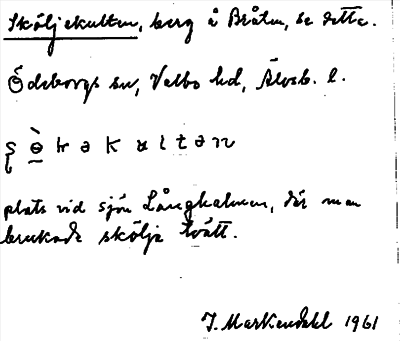 Sköljekulten, berg å Bråten, se detta.
Ödeborgs sn, Valbo hd, Älvsb. l.
plats vid sjön Långhalmen, där man
brukade skölja tvätt.
J. Markendahl 1961